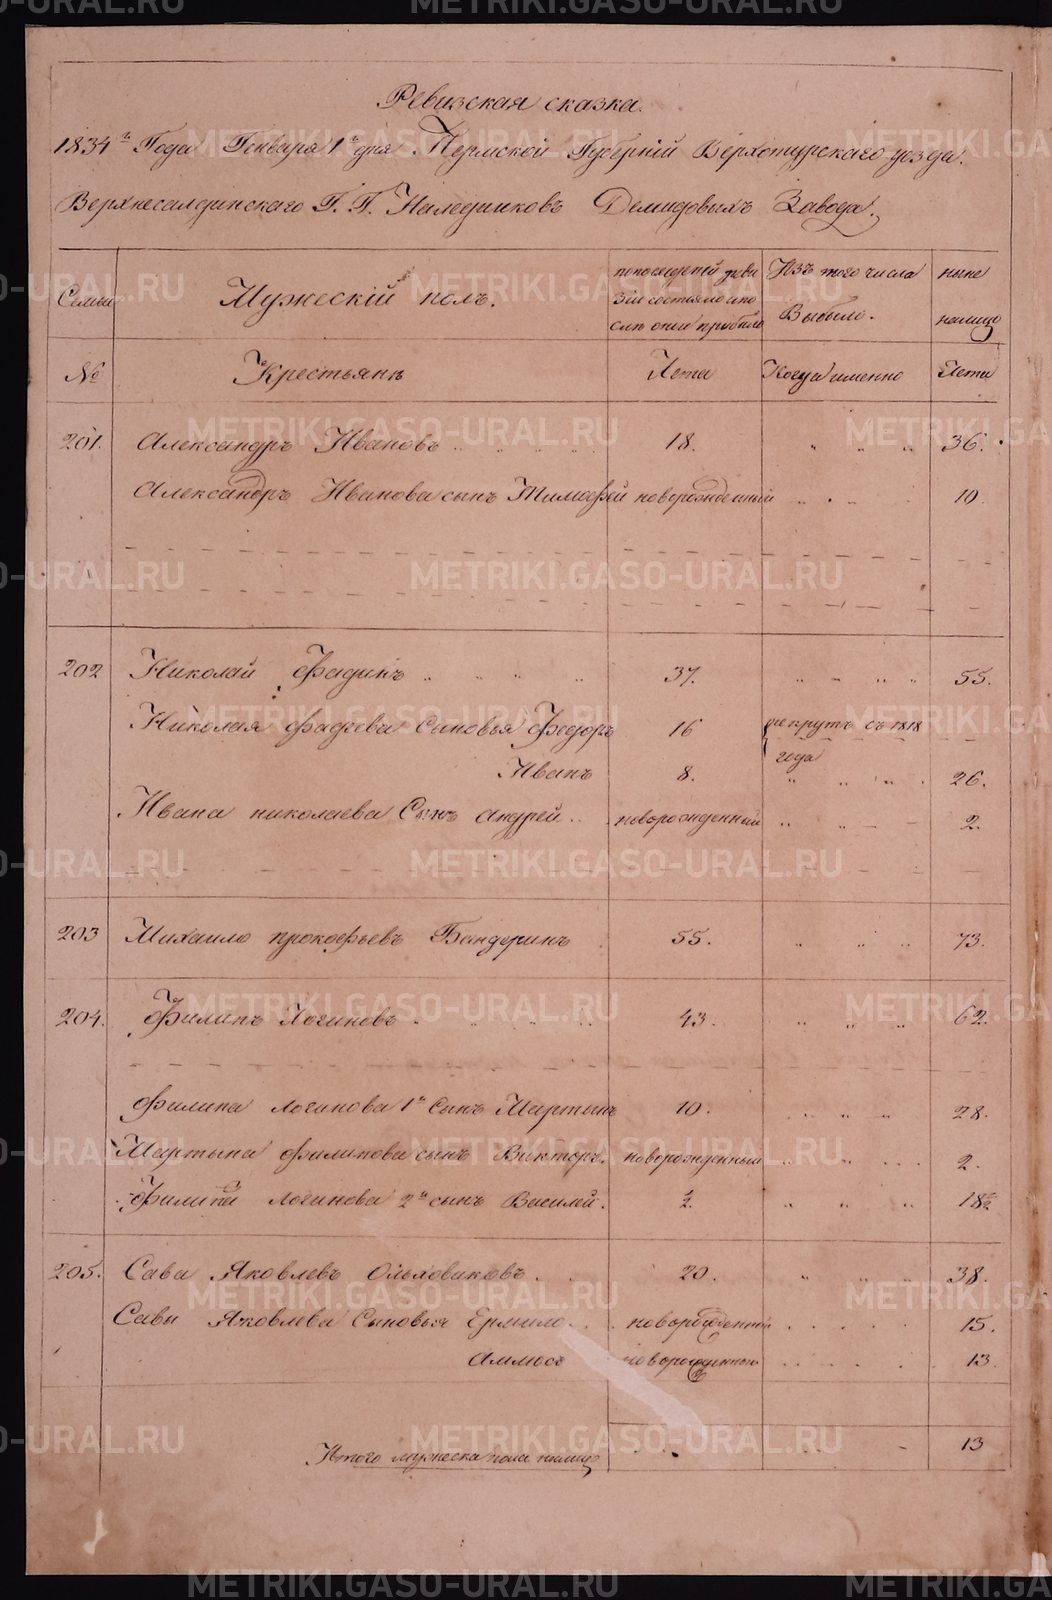 Ревизская сказка.
1834го Года Генваря 1го дня. Пермской Губернiй Верхотурскаго уезда.
Верхнесалдинскаго Г. Г. Наледниковъ Демидовыхъ Завода.
Семьи
Мужескiй полъ.
по последней реви
зiи состояло и по
сле оной прибыло
Изъ того числа
Выбыло.
ныне
налицо
№ Крестьяне Лета Когда именно Лета
201. Александръ Ивановъ 18. 36.
Александръ Иванова сынъ Тимофей новорожденный 10.
202 Николай Фадинъ 37. 55.
Николая Фадеева Сыновья Федоръ 16 рекрутъ съ 1818
года
Иванъ 8. 26.
Ивана николаева Сынъ Андрей новорожденный 2.
203 Михаило прокофьевъ Бандеринъ 55. 73.
204. Филипъ Логиновъ 43. 62.
Филипа логинова 1й Сынъ Мартынъ 10. 28.
Мартына филипова сынъ Викторъ. новорожденный 2.
Филипа логинова 2й сынъ Василей. ½. 18½
205. Сава Яковлевъ Ольховиковъ. 20. 38.
Савы Яковлева Сыновья Ермило новорожденной 15.
Аммосъ новорожденной 13.
Итого мужеска пола налицо 13
METRIKI.GASO-URAL.RU